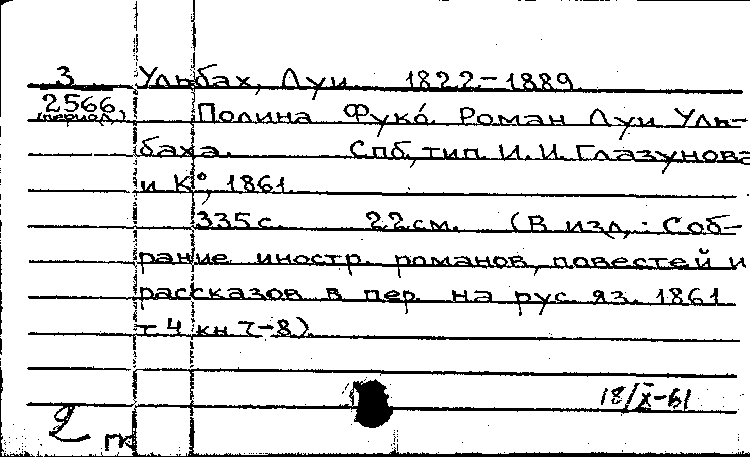 3 Ульбах, Луи 1822-1889
2566 Полина Фуко́. Роман Луи Уль-
(период.)
баха. Спб, тип. И. И. Глазунова
и К°, 1861
335 с. 22 см. (В изд.: Соб-
рание иностр. романов, повестей и
рассказов в пер. на рус. яз. 1861
т 4 кн 7-8)
18/IX-61
2 ГК